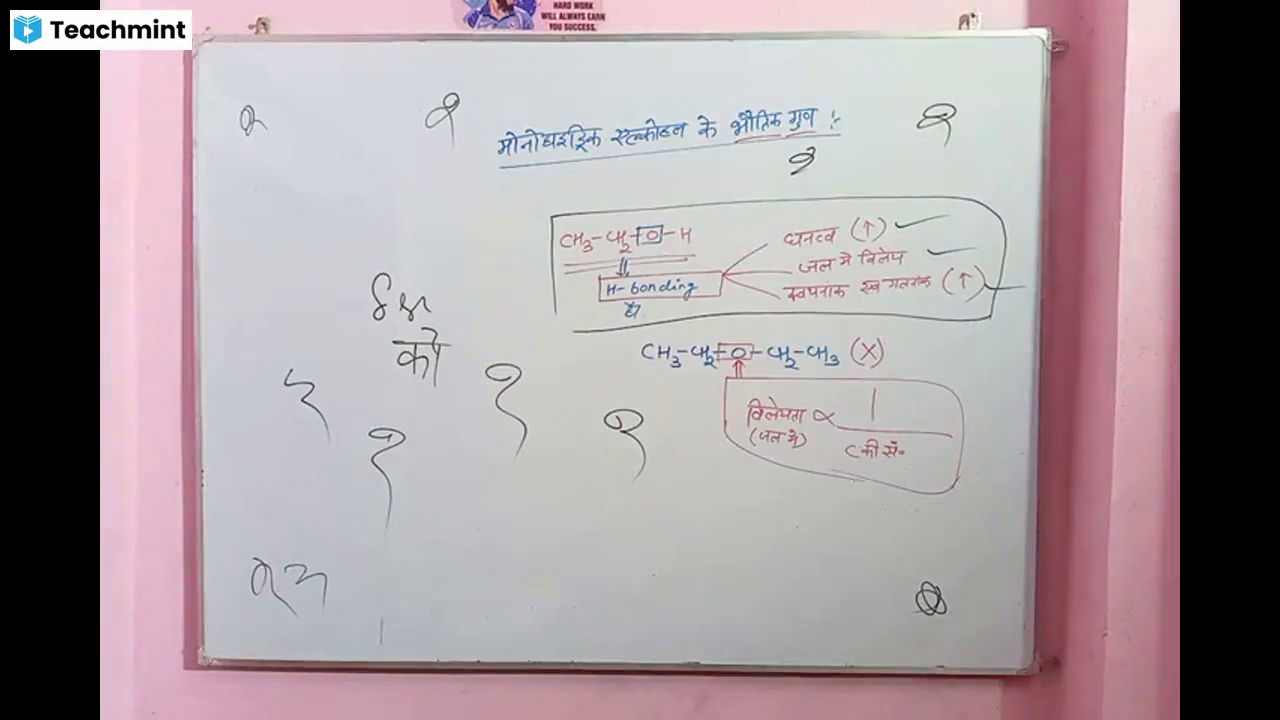 Teachmint
HARD WORK
WILL ALWAYS EARN
YOU SUCCESS.
मोनोहाइड्रिक एल्कोहल के भौतिक गुण :-
CH3-CH2-O-H
H-bonding
है।
घनत्व (↑)
जल में विलेय
क्वथनांक एवं गलनांक (↑)
को
CH3-CH2-O-CH2-CH3 (X)
विलेयता ∝ 1
(जल में)
C की सं॰